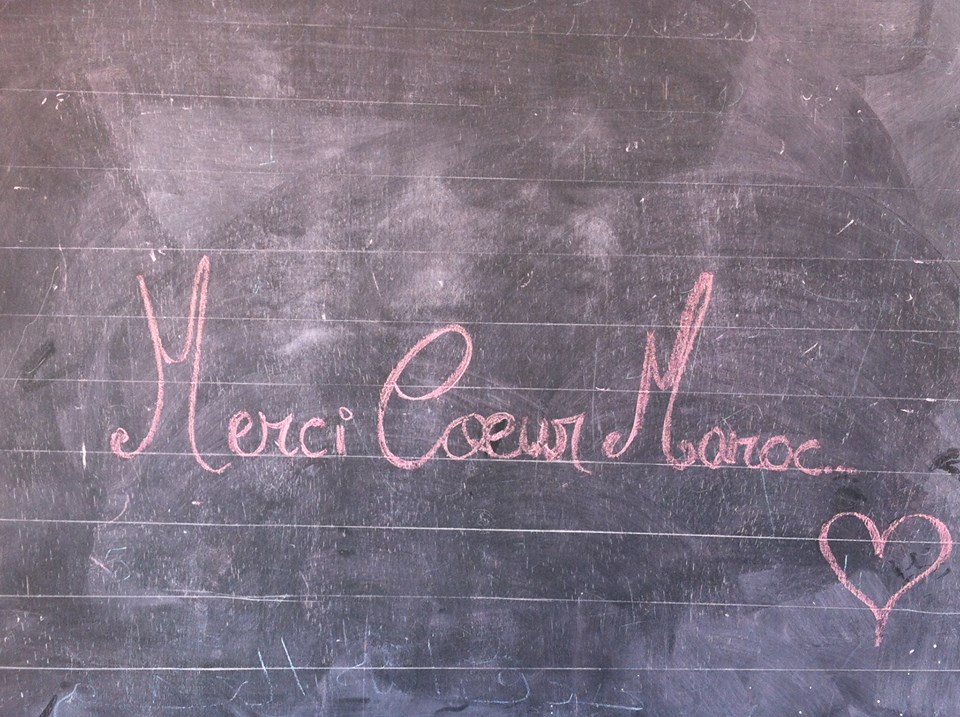 Merci Coeur Maroc...